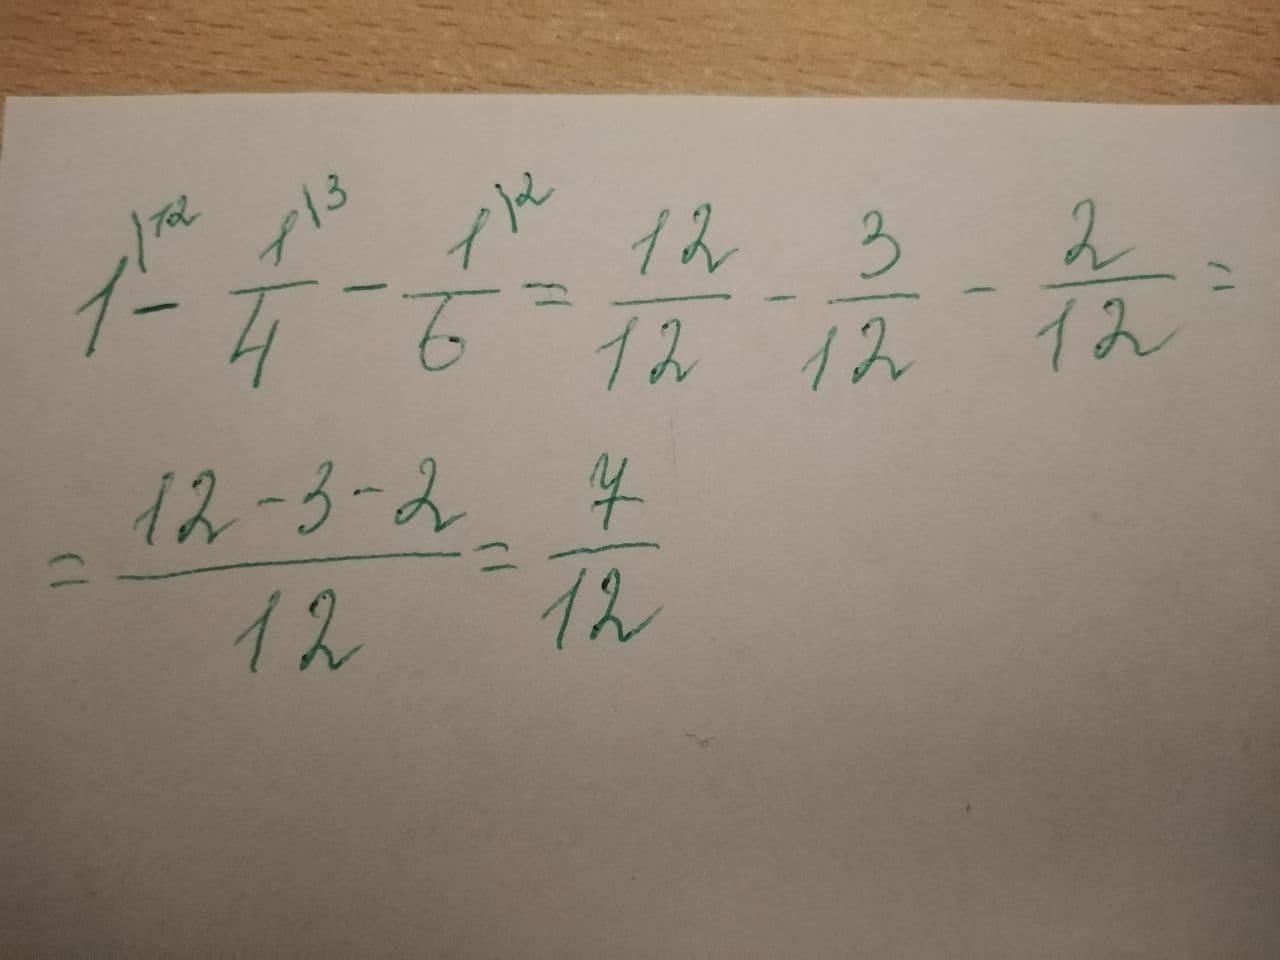 1\12 - 1\3/4 - 1\2/6 = 12/12 - 3/12 - 2/12 =
= 12-3-2/12 = 7/12